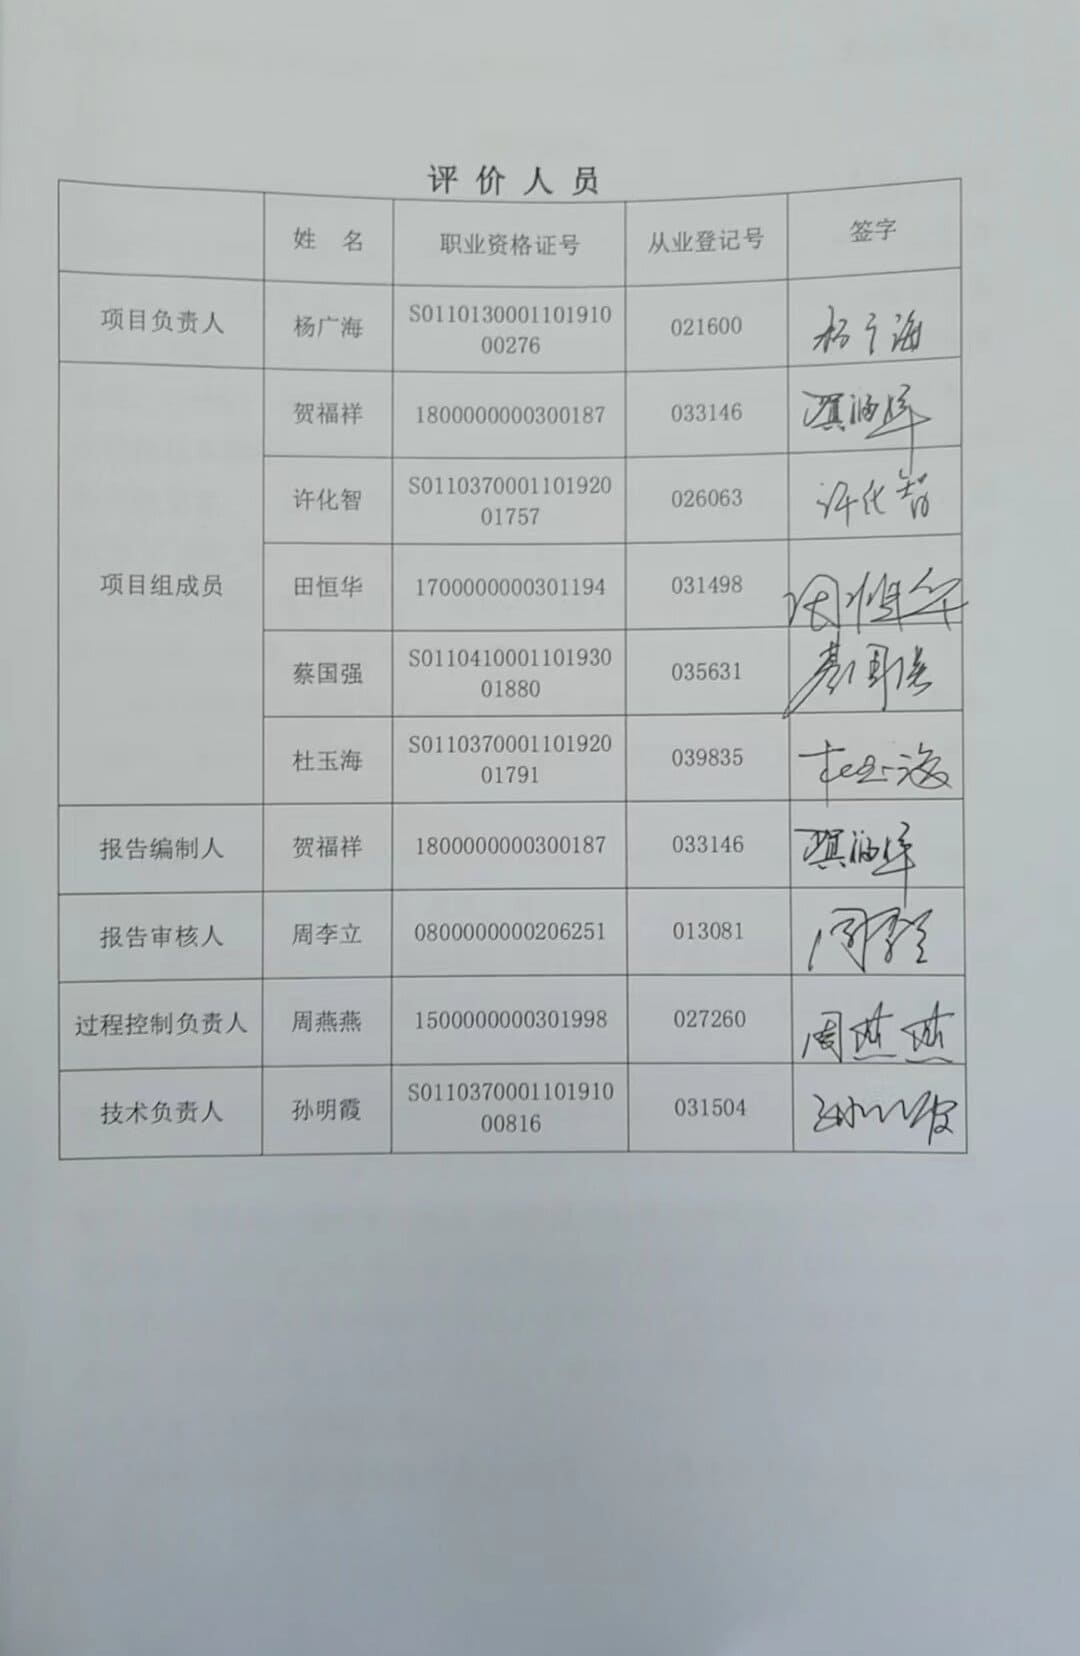 评价人员
姓 名 职业资格证号 从业登记号 签字
项目负责人 杨广海 S0110130001101910 021600 杨广海
00276
贺福祥 1800000000300187 033146 贺福祥
许化智 S0110370001101920 026063 许化智
01757
项目组成员 田恒华 1700000000301194 031498 田恒华
蔡国强 S0110410001101930 035631 蔡国强
01880
杜玉海 S0110370001101920 039835 杜玉海
01791
报告编制人 贺福祥 1800000000300187 033146 贺福祥
报告审核人 周李立 0800000000206251 013081 周李立
过程控制负责人 周燕燕 1500000000301998 027260 周燕燕
技术负责人 孙明霞 S0110370001101910 031504 孙明霞
00816